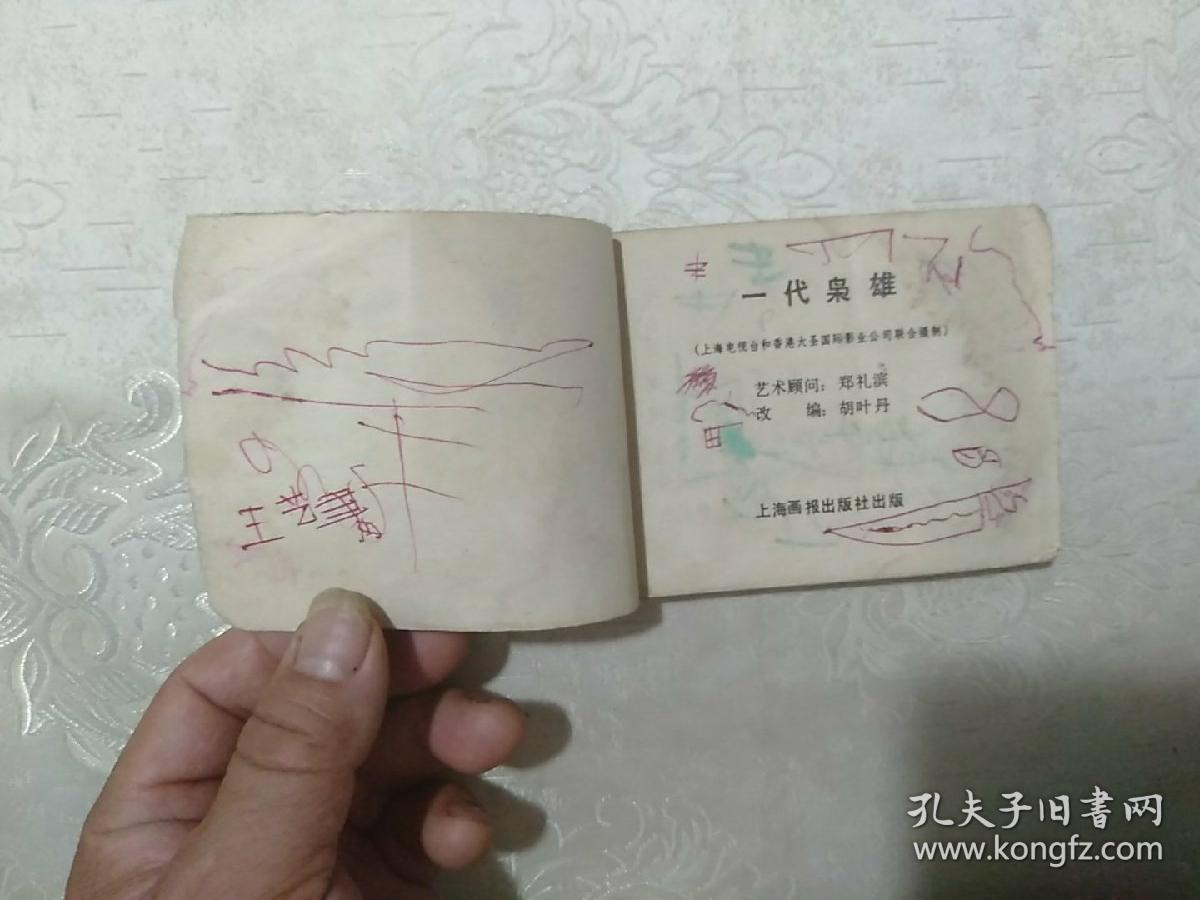 王
一代枭雄
(上海电视台和香港大圣国际影业公司联合摄制)
艺术顾问：郑礼滨
改　　编：胡叶丹
上海画报出版社出版
孔夫子旧书网
www.kongfz.com